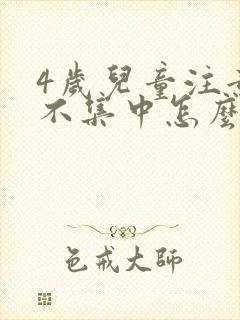 4歲兒童注意
不集中怎麼
色戒大師